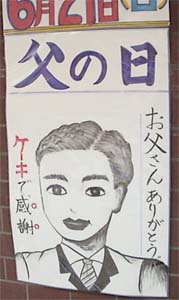 6月21日(日)
父の日
お父さんありがとう。
ケーキで感謝。